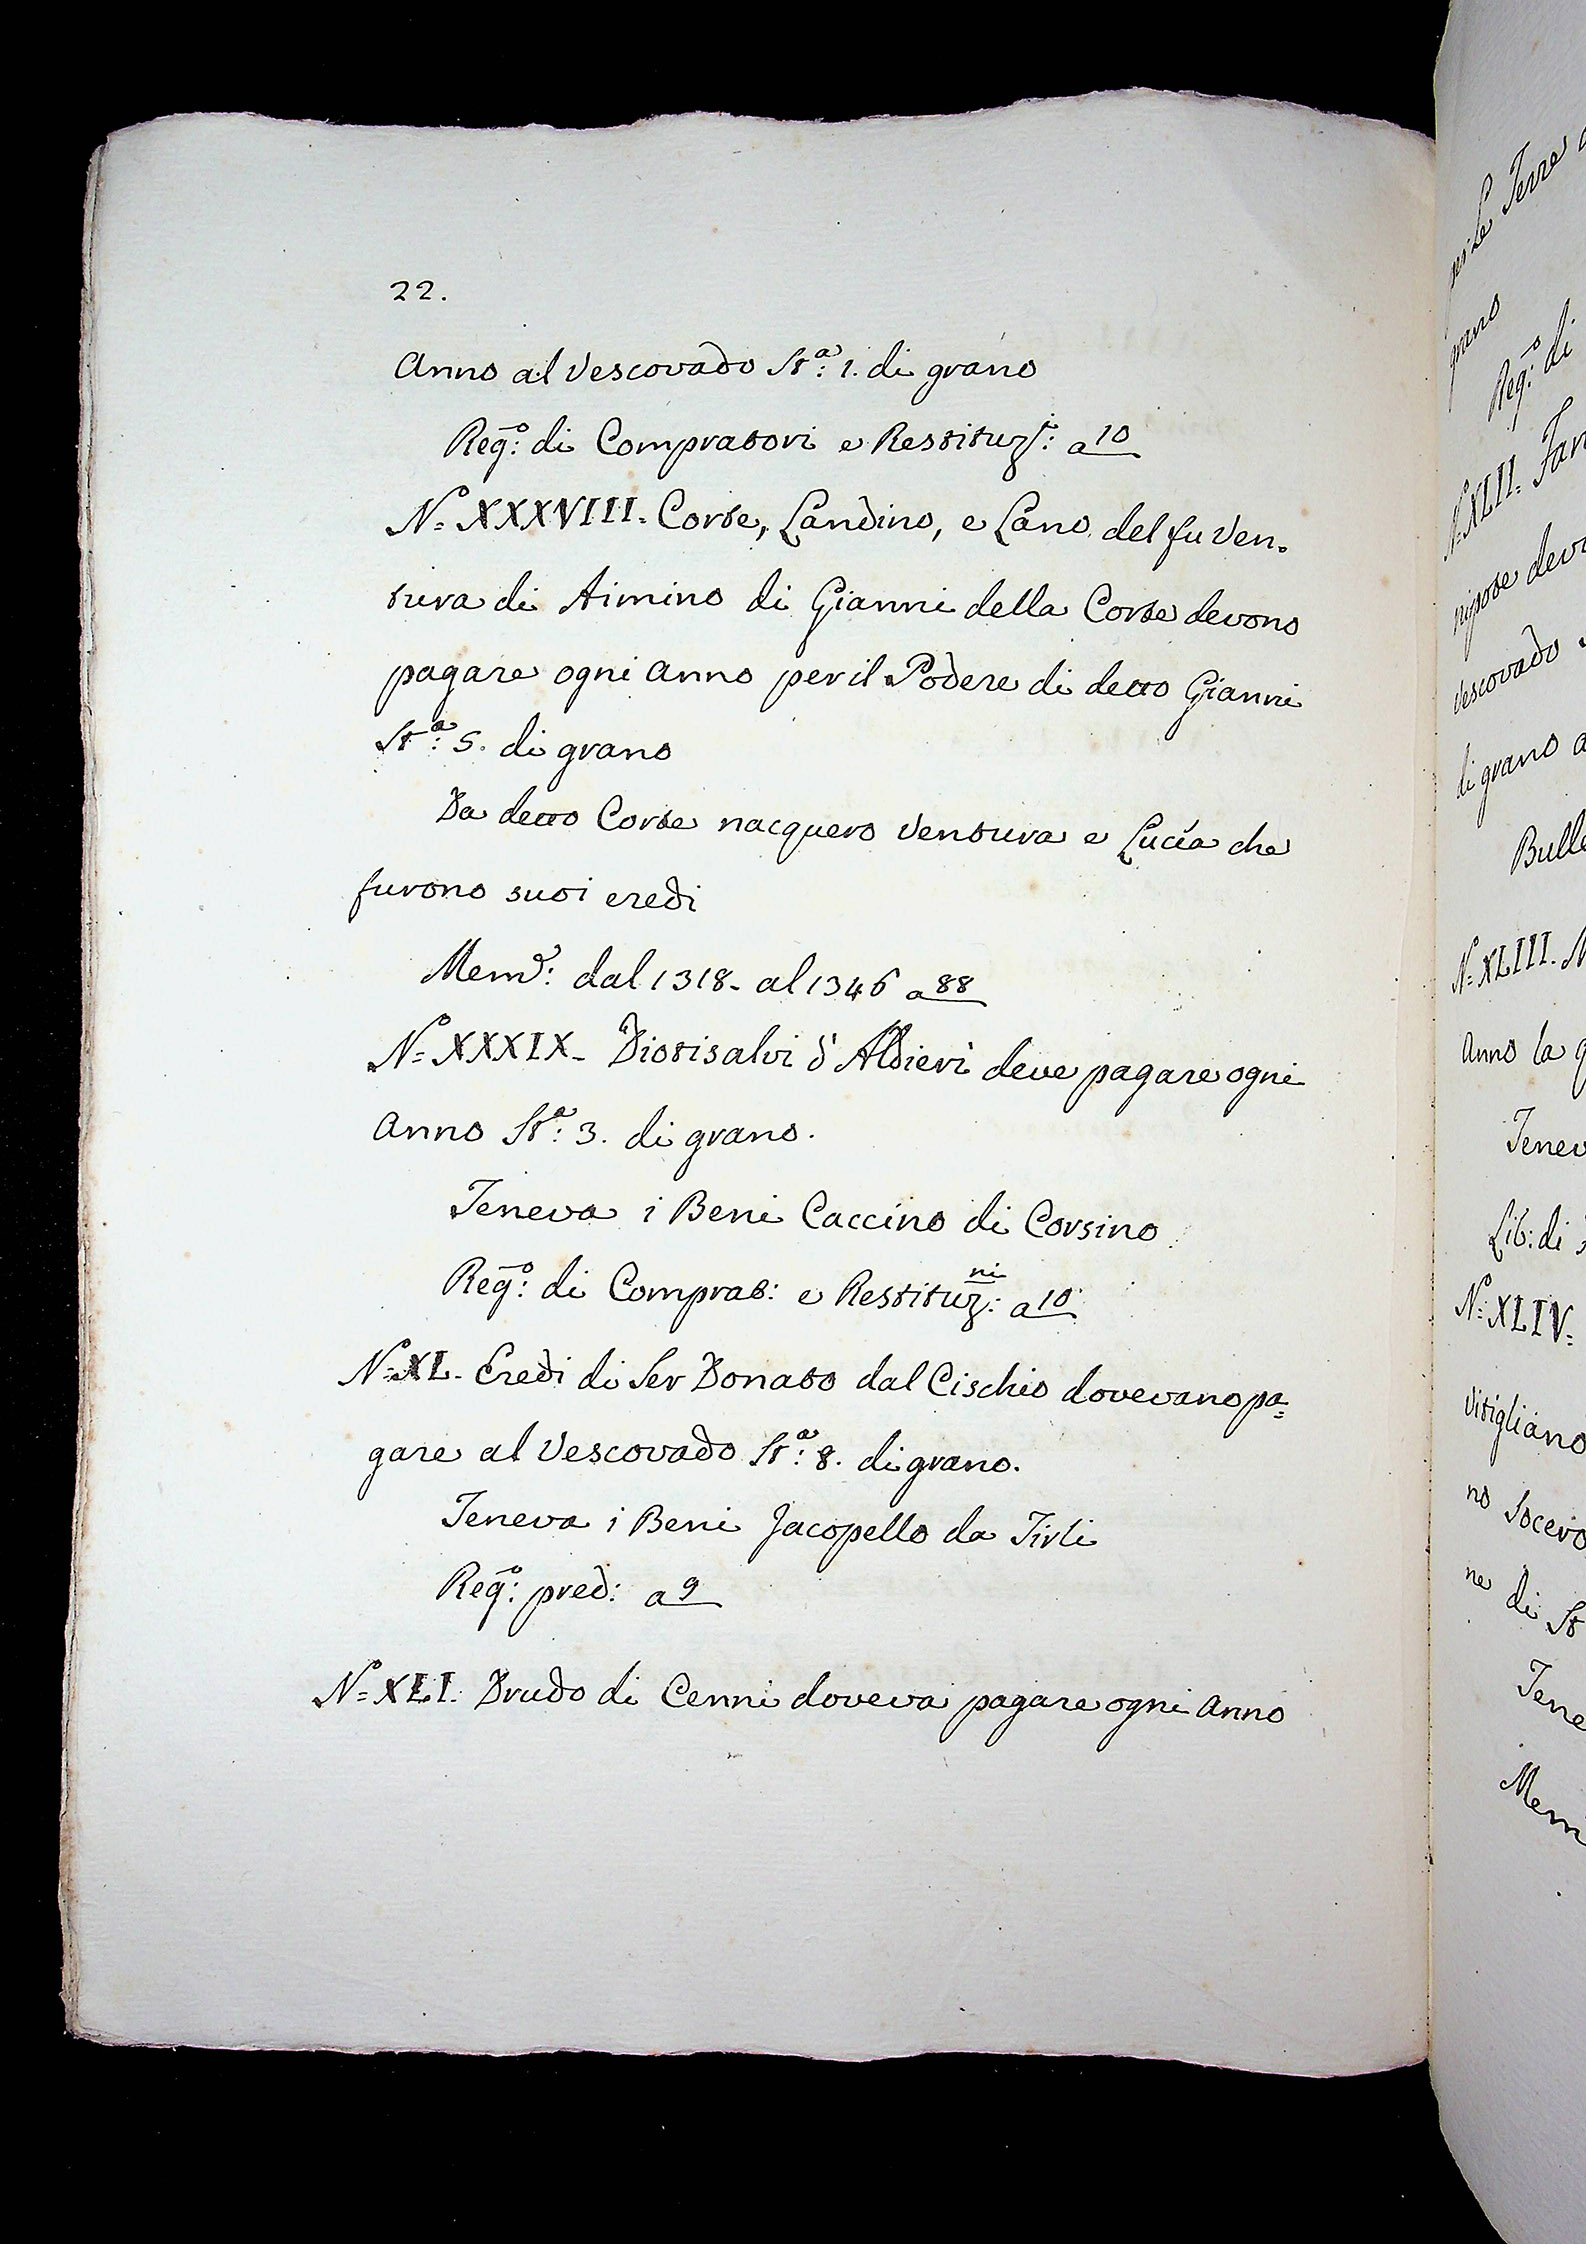 22.
Anno al Vescovado St.ª: 1. di grano
Reg.º: di Compratori e Restituz.i: a 10
N.º XXXVIII. Corte, Landino, e Lano del fu Ven=
tura di Aimino di Gianni della Corte devono
pagare ogni Anno per il Podere di detto Gianni
St.ª: 5. di grano
Da detto Corte nacquero Ventura e Lucia che
furono suoi eredi
Mem.e: dal 1318. al 1346 a 88
N.º XXXIX. Diotisalvi d'Aldieri deve pagare ogni
Anno St.ª: 3. di grano.
Teneva i Beni Caccino di Corsino
Reg.º: di Comprat: e Restituz.ni: a 10
N.º XL. Eredi di Ser Donato dal Cischio dovevano pa=
gare al Vescovado St.ª: 8. di grano.
Teneva i Beni Jacopello da Tirli
Reg.º: pred: a 9
N.º XLI. Drudo di Cenni doveva pagare ogni Anno
Le Terre
grano
Reg.º: di
N.º XLII.
nipote
Vescovado
di grano a
N.º XLIII.
Anno la
Lib: di
N.º XLIV.
Vitigliano
no Socero
ne di St